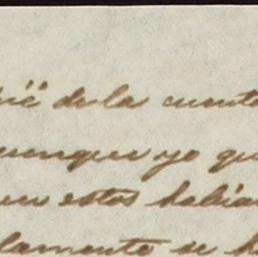 de la cuenta
aunque yo qu
en estos habia
lamente se h